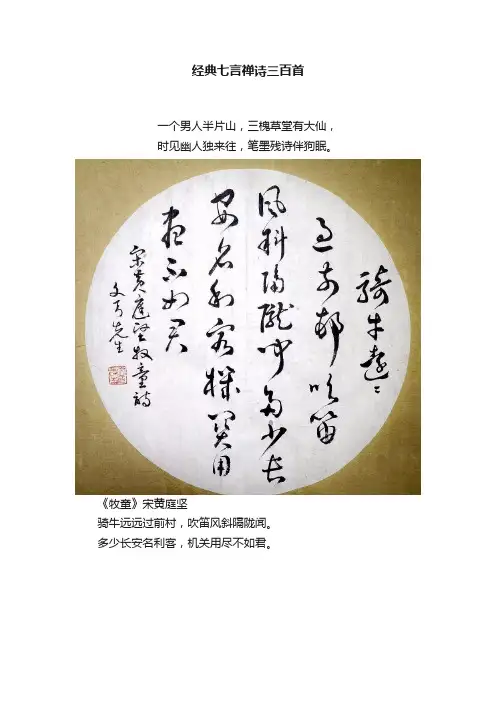 经典七言禅诗三百首
一个男人半片山，三槐草堂有大仙，
时见幽人独来往，笔墨残诗伴狗眠。
騎牛遠〻
過前邨吹笛
風斜隔隴聞多少长
安名利客機関用
尽不如君
宋黄庭坚牧童詩
先生
《牧童》宋黄庭坚
骑牛远远过前村，吹笛风斜隔陇闻。
多少长安名利客，机关用尽不如君。